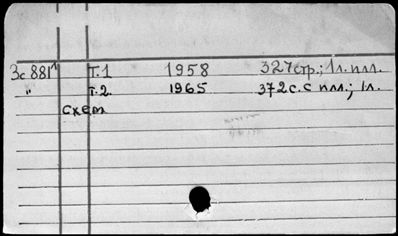 Зс 881¹ т.1 1958 327стр.; 1л. илл.
" т.2. 1965 372с. с илл.; 1л.
схем